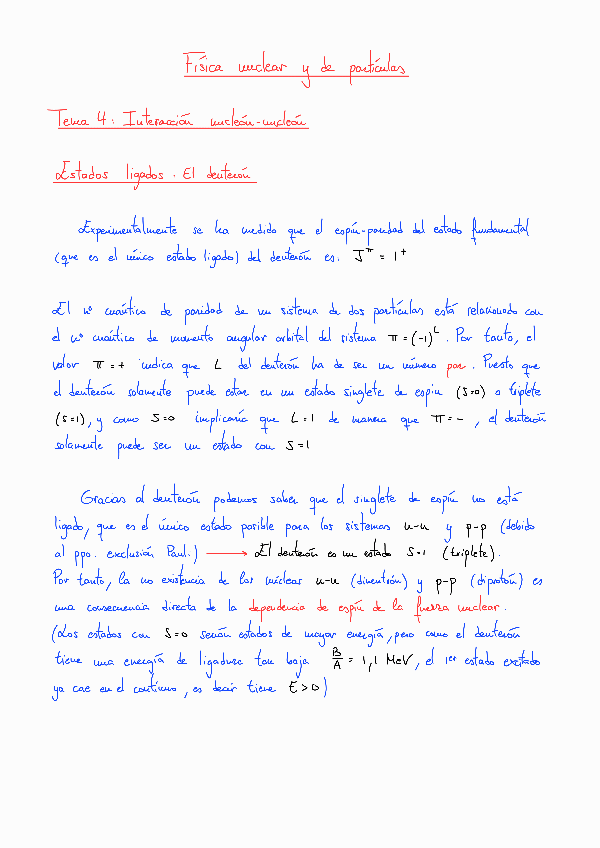 Física nuclear y de partículas
Tema 4: Interacción nucleón-nucleón
Estados ligados. El deuterón
Experimentalmente se ha medido que el espín-paridad del estado fundamental
(que es el único estado ligado) del deuterón es: J^π = 1^+
El nº cuántico de paridad de un sistema de dos partículas está relacionado con
el nº cuántico de momento angular orbital del sistema π = (-1)^L. Por tanto, el
valor π = + indica que L del deuterón ha de ser un número par. Puesto que
el deuterón solamente puede estar en un estado singlete de espín (S=0) o triplete
(S=1), y como S=0 implicaría que L=1 de manera que π = -, el deuterón
solamente puede ser un estado con S=1
Gracias al deuterón podemos saber que el singlete de espín no está
ligado, que es el único estado posible para los sistemas n-n y p-p (debido
al ppo. exclusión Pauli) → El deuterón es un estado S=1 (triplete).
Por tanto, la no existencia de los núcleos n-n (dineutrón) y p-p (diprotón) es
una consecuencia directa de la dependencia de espín de la fuerza nuclear.
(Los estados con S=0 serían estados de mayor energía, pero como el deuterón
tiene una energía de ligadura tan baja B/A = 1,1 MeV, el 1er estado excitado
ya cae en el continuo, es decir tiene E>0)